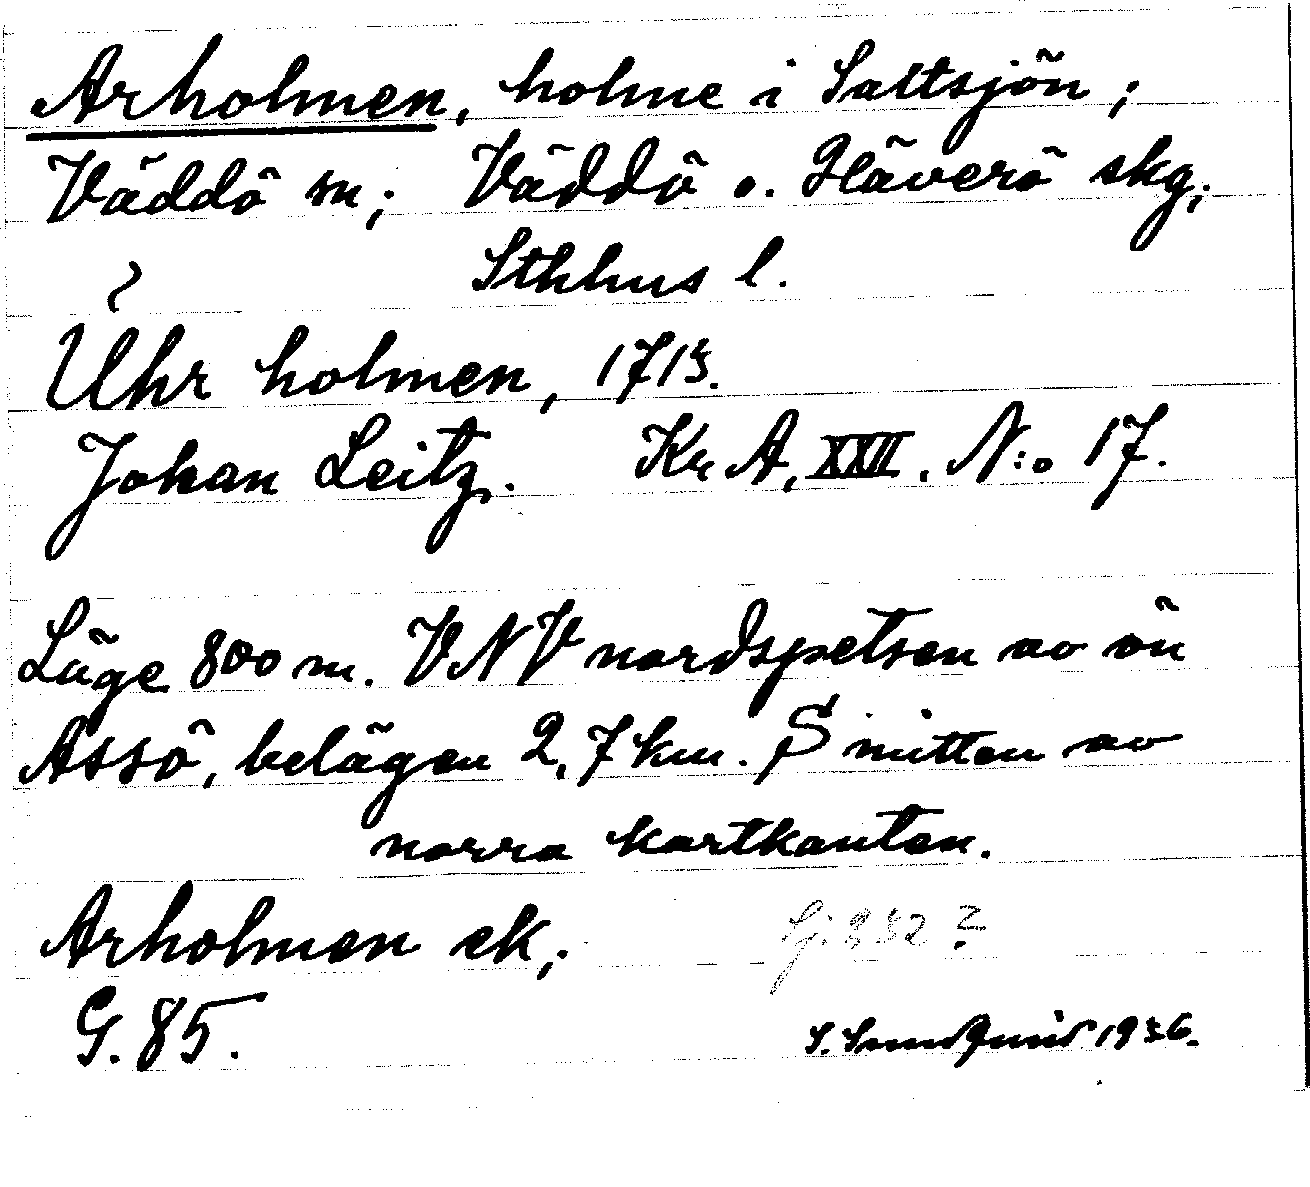 Arholmen, holme i Saltsjön;
Väddö sn; Väddö o. Häverö skg;
Sthlms l.
Uhr holmen, 1713.
Johan Leitz. Kr A, XXII. N:o 17.
Läge 800 m. VNV nordspetsen av ön
Assö, belägen 2,7 km. S mitten av
norra kartkanten.
Arholmen ek;
G. 85.
S. Sundquist 1936.